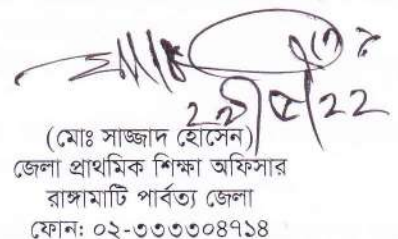 (মোঃ সাজ্জাদ হোসেন)
জেলা প্রাথমিক শিক্ষা অফিসার
রাঙ্গামাটি পার্বত্য জেলা
ফোন: ০২-৩৩৩৩০৪৭১৪